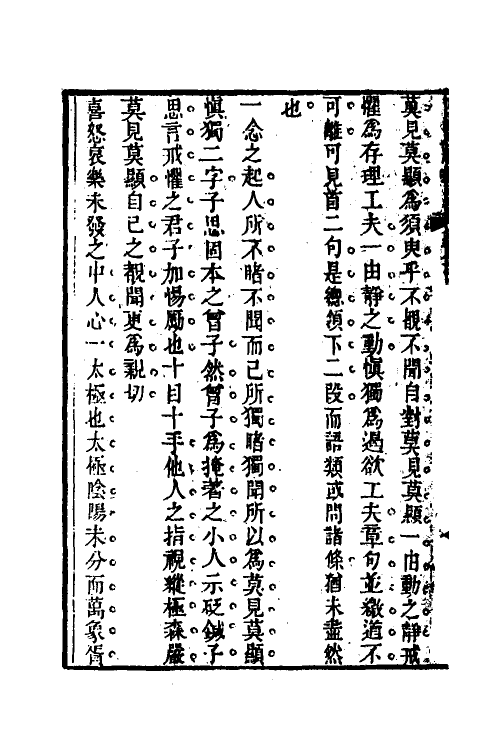 莫見莫顯爲須臾乎不覩不聞自對莫見莫顯一由動之靜戒
懼爲存理工夫一由靜之動愼獨爲遏欲工夫章句並繳道不
可離可見首二句是總領下二段而語類或問諸條猶未盡然
也
一念之起人所不睹不聞而已所獨睹獨聞所以爲莫見莫顯
愼獨二字子思固本之曾子然曾子爲掩著之小人示砭鍼子
思言戒懼之君子加惕勵也十目十手他人之指視縱極森嚴
莫見莫顯自已之覩聞更爲親切
喜怒哀樂未發之中人心一太極也太極陰陽未分而萬象胥